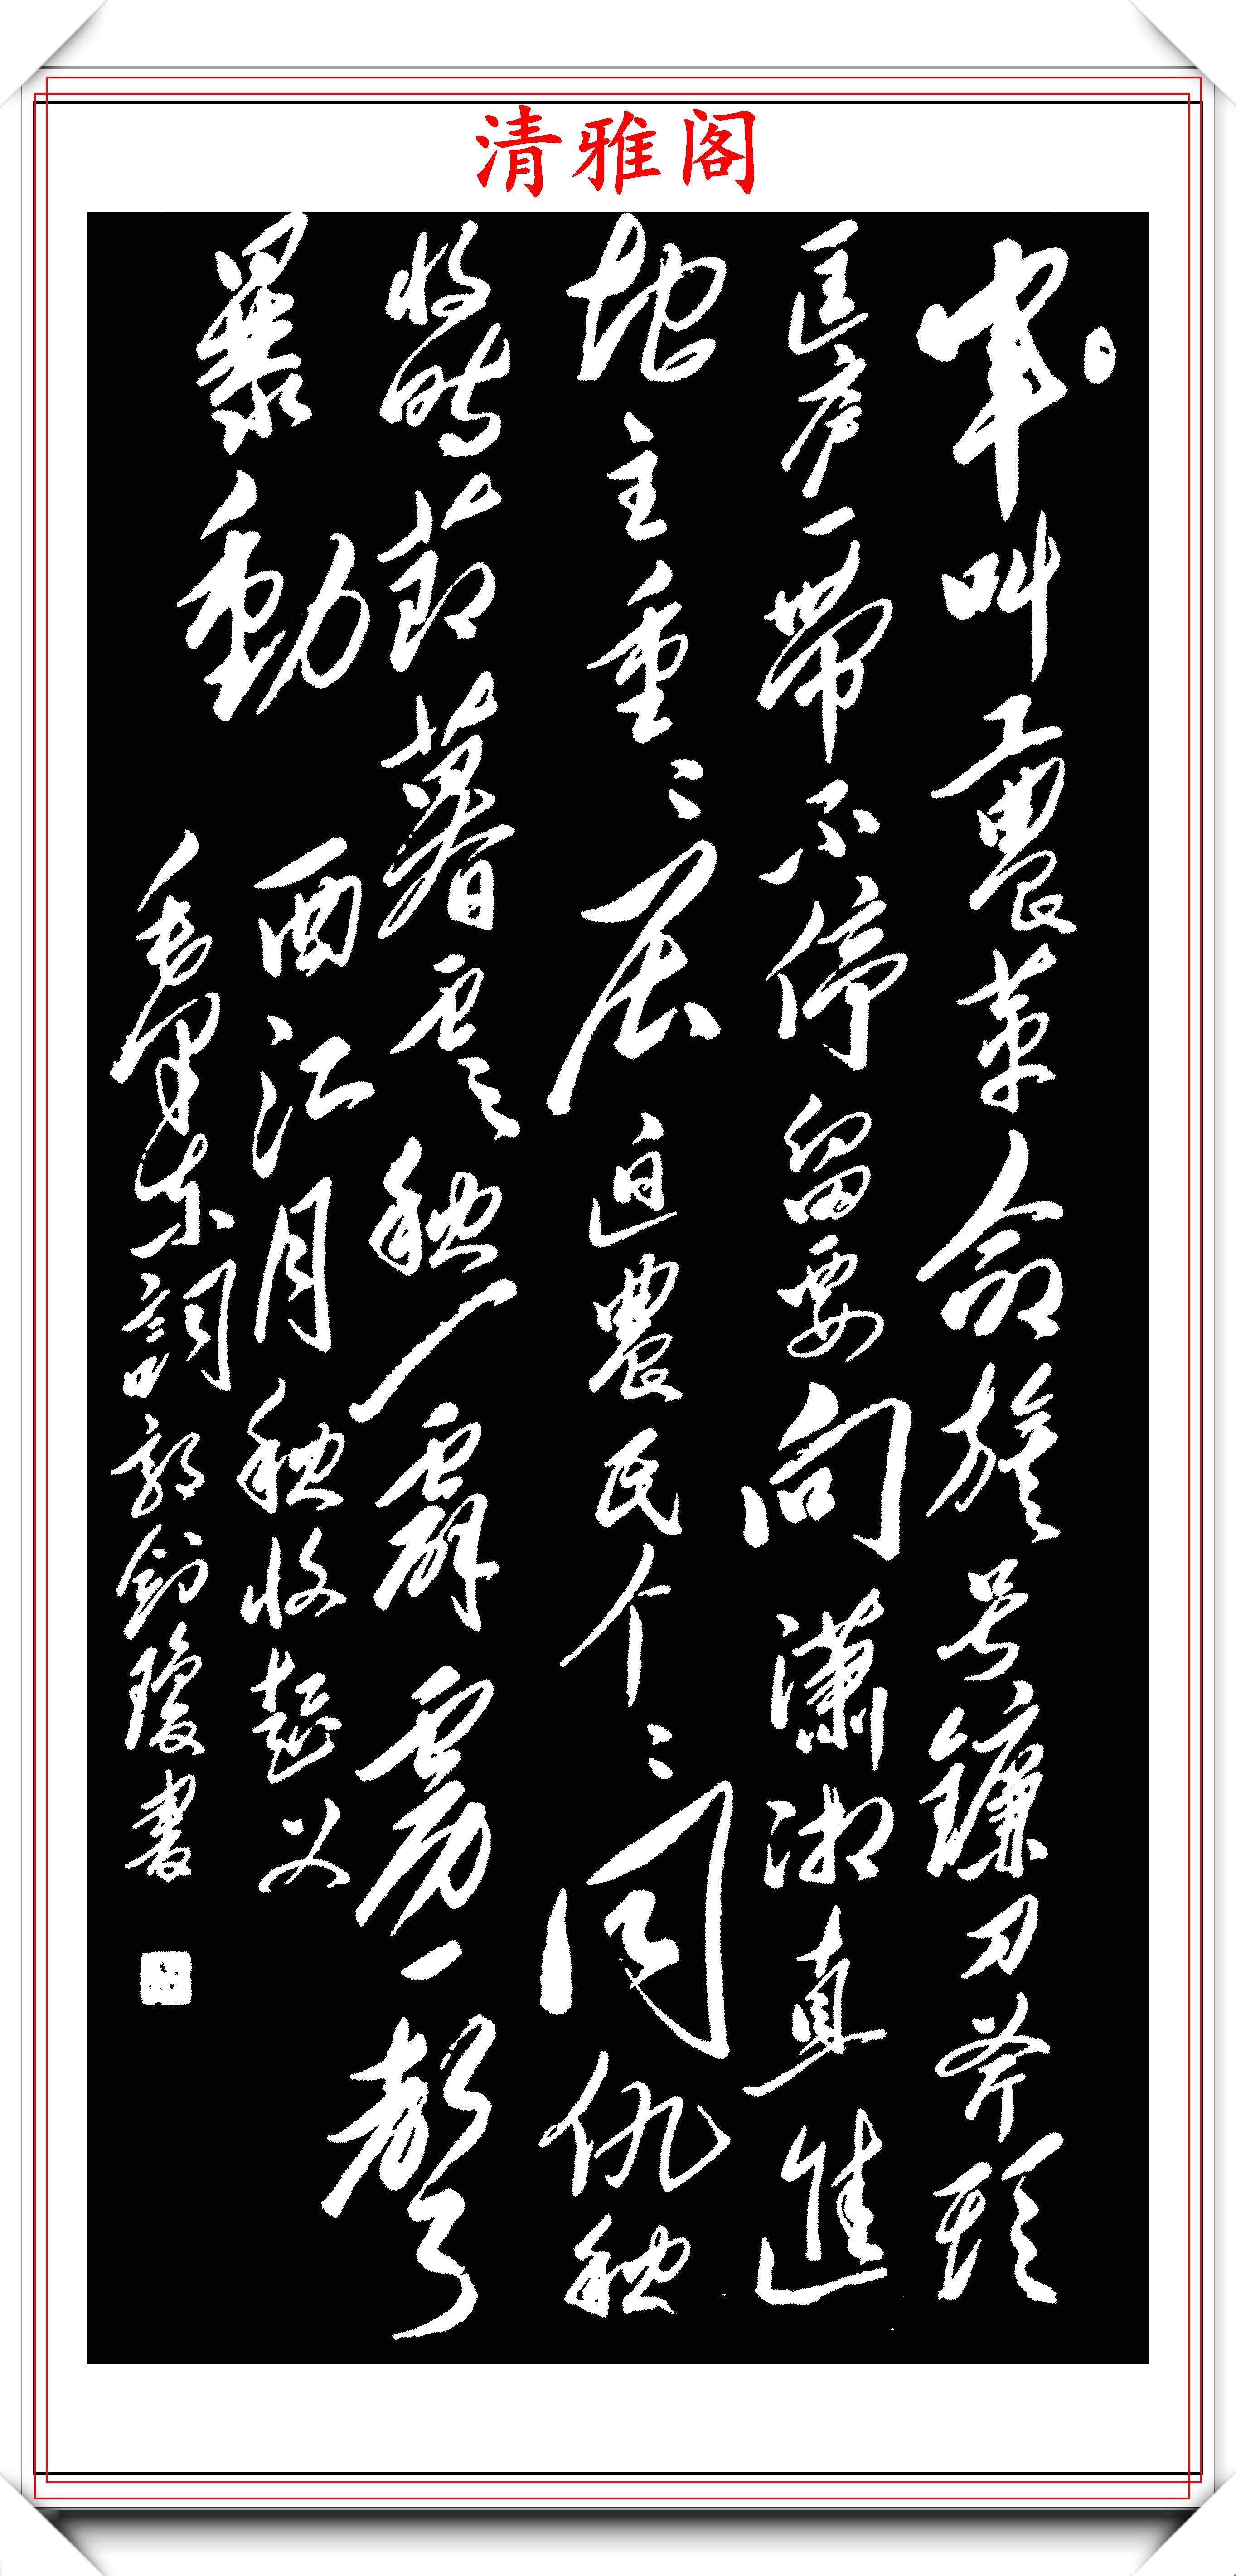 清雅阁
軍叫工農革命旗号鐮刀斧頭
匡庐一帶不停留要向瀟湘直進
地主重々压迫農民个々同仇秋
收時節暮雲愁霹雳一聲
暴動
西江月秋收起义
毛澤东詞郭瓊書